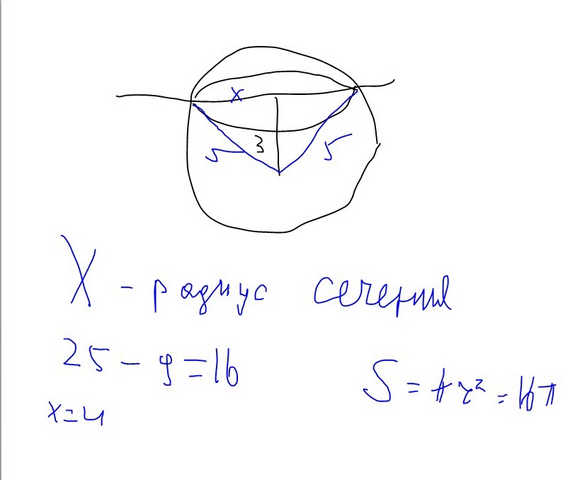 x
5 3 5
X - радиус сечения
25 - 9 = 16
S = πr² = 16π
x = 4